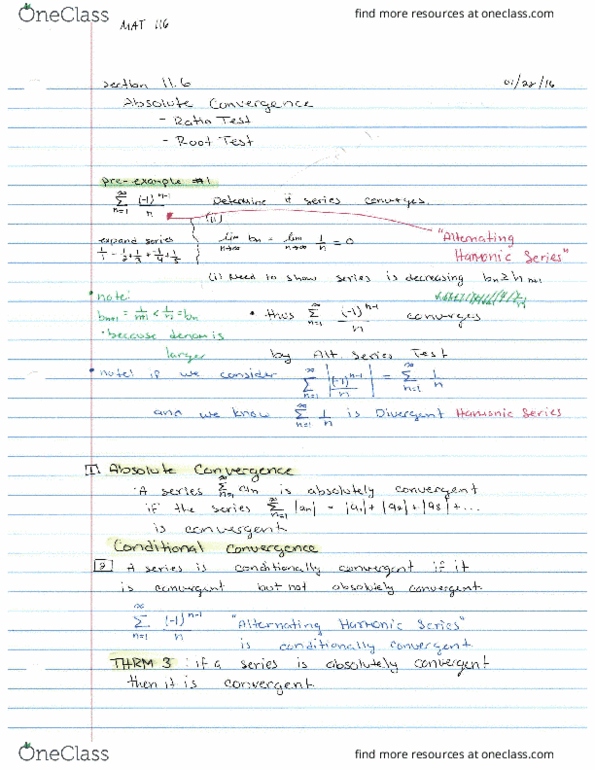 OneClass
find more resources at oneclass.com
MAT 116
section 11.6
01/22/16
Absolute Convergence
- Ratio Test
- Root Test
pre-example #1
∞ Σ n=1 (-1)^(n-1) / n Determine if series converges.
(ii)
"Alternating Harmonic Series"
expand series
1/1 - 1/2 + 1/3 - 1/4 + 1/5
lim n→∞ bn = lim n→∞ 1/n = 0
(i) Need to show series is decreasing bn ≥ bn+1
• note:
bn+1 = 1/(n+1) < 1/n = bn
• because denom is
larger
• thus ∞ Σ n=1 (-1)^(n-1) / n converges
by Alt. Series Test
• note! if we consider ∞ Σ n=1 |(-1)^(n-1) / n| = ∞ Σ n=1 1/n
and we know ∞ Σ n=1 1/n is Divergent Harmonic Series
1 Absolute Convergence
A series ∞ Σ n=1 an is absolutely convergent
if the series ∞ Σ n=1 |an| = |a1| + |a2| + |a3| + ...
is convergent
Conditional Convergence
2 A series is conditionally convergent if it
is convergent but not absolutely convergent.
∞ Σ n=1 (-1)^(n-1) / n "Alternating Harmonic Series"
is conditionally convergent
THRM 3 : if a series is absolutely convergent
then it is convergent.
OneClass
find more resources at oneclass.com